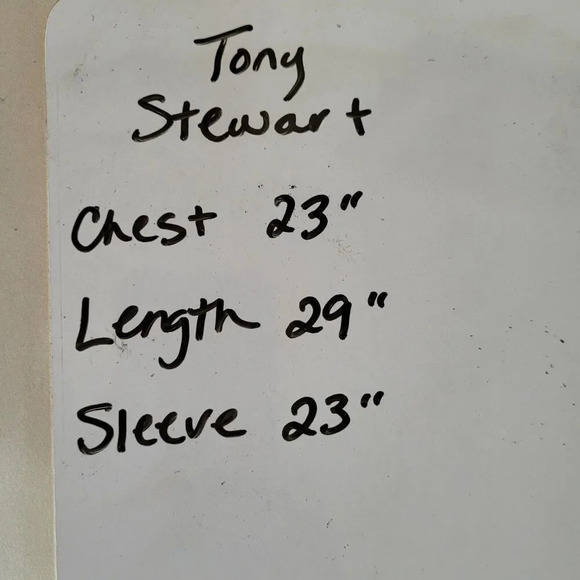 Tony
Stewart
Chest 23"
Length 29"
Sleeve 23"